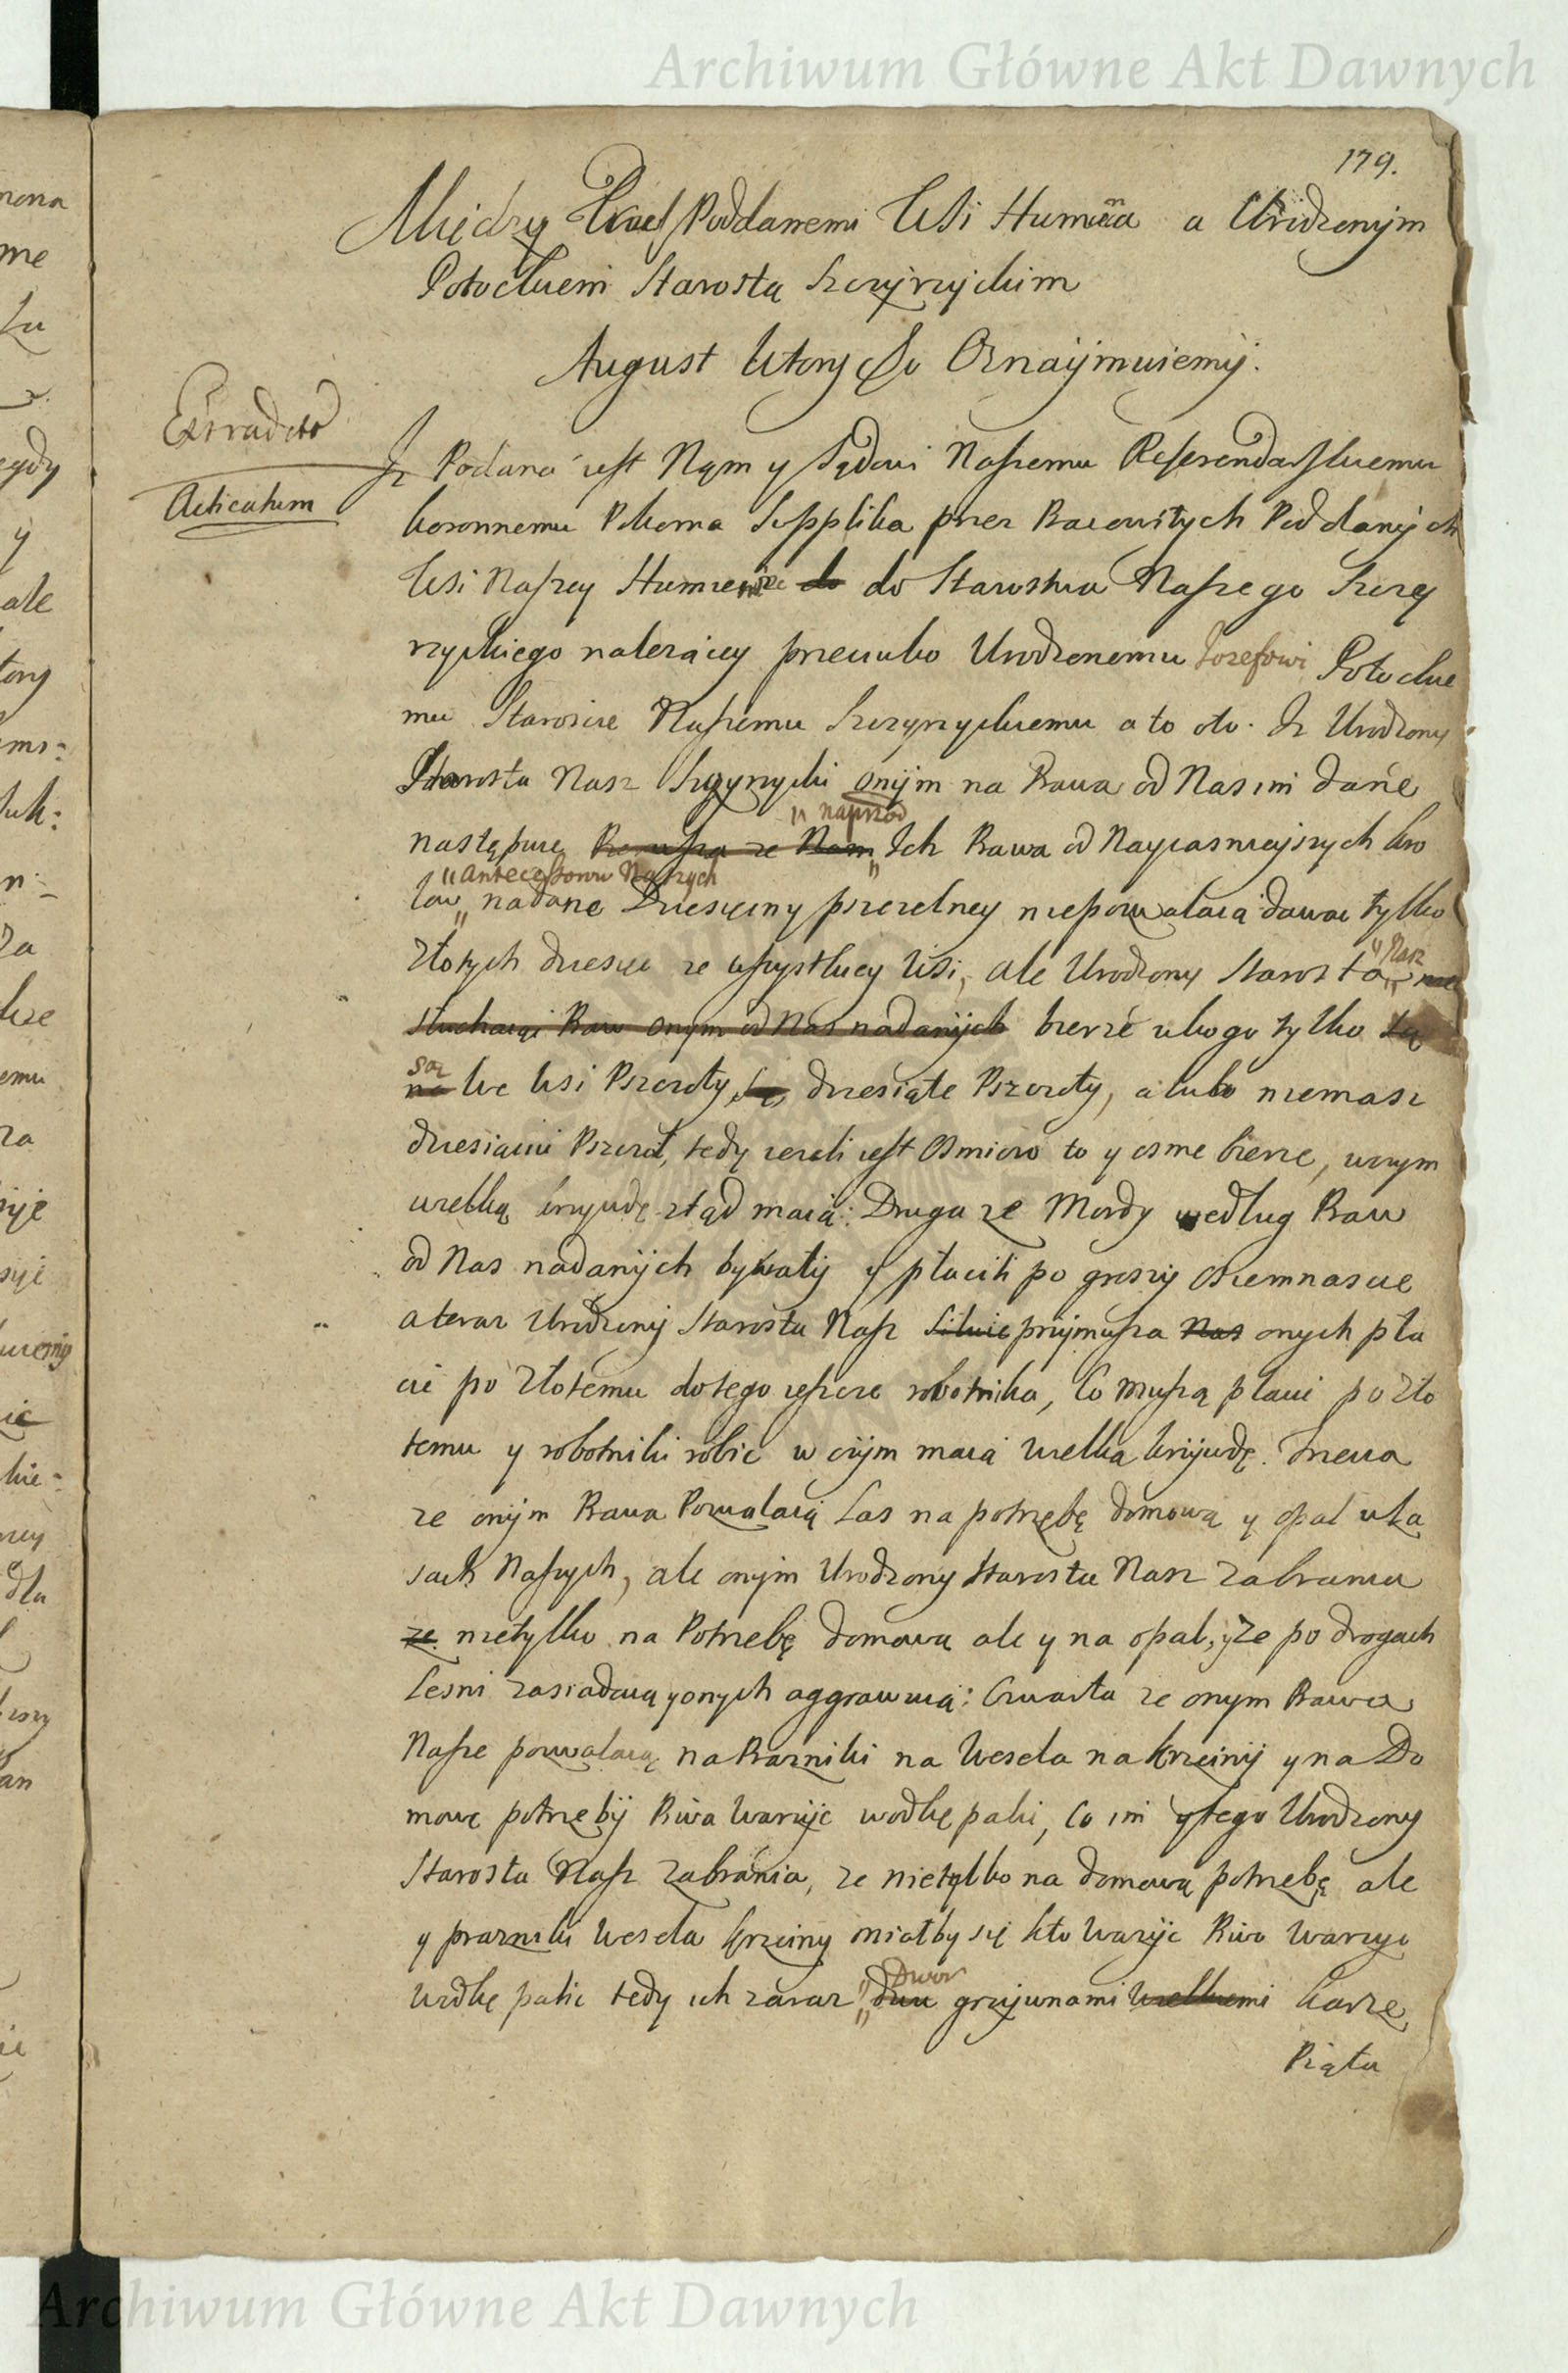 Archiwum Główne Akt Dawnych
179.
Między Poddanemi Wsi Humienca a Urodzonym
Potockiem Starostą Szczyrzyckim
August Wtory Oznaijmuiemÿ.
Extradett
Articatum
Jz Podana iest Nąm y Sądowi Naszemu Referendarskiemu
koronnemu Pokorna Supplika przez Pracowitych Poddanÿch
Wsi Naszey Humience do do Starostwa Naszego Szczy
rzyckiego nalezącey przeciwko Urodzonemu Jozefowi Potockie
mu Staroscie Naszemu Szczyrzyckiemu a to oto. Jz Urodzony
Starosta Nasz Szczyrzycki onÿm na Prawa od Nas im dane
następuie Ich Prawa od Nayiasnieyszych kro
" naprzod
low nadane Dziesięciny pszczelney niepozwalaią dawac tylko
" Antecessorow Naszych
Złotych dziesięc ze wszystkiey Wsi, ale Urodzony Starosta
" Nasz
słuchaiąc Praw onym od Nas nadanÿch bierze u kogo tylko
są
na We Wsi Pszczoły, dziesiąte Pszczoły, a lubo niemasz
dziesiąci Pszczoł, tedy iezeli iest Osmioro to y osme bierze, w czym
wielką krzywdę ztąd maią: Druga ze Mordy według Praw
od Nas nadanÿch bywałÿ y płacili po groszy osiemnascie
a teraz Urodzonÿ Starosta Nasz przÿmusza Nas onych pła
cic po Złotemu do tego ieszcze robotnika, Co muszą płacic po Zło
temu y robotniki robic w czÿm maią wielką krzÿwdę. Trzecia
ze onÿm Prawa Pozwalaią Las na potrzębę domową y opał w La
sach Naszych, ale onym Urodzony Starosta Nasz zabrania
ze nietylko na Potrzebę domową ale y na opał, y Ze po drogach
Lesni zasiadaią y onych aggrawuią: Czwarta ze onym Prawa
Nasze pozwalaią na Prazniki na Wesela na krzcinÿ y na Do
mowę potrzebÿ Piwa Warzÿc wodkę palic, Co im y tego Urodzony
Starosta Nasz Zabrania, ze nietylko na domową potrzebę ale
y prazniki Wesela krzciny miałby się kto Warzÿc Piwo Warzyc
Wodkę palic tedy ich zaraz dwu grzywnami Wielkiemi karze
Dwor
Piąta
Archiwum Główne Akt Dawnych